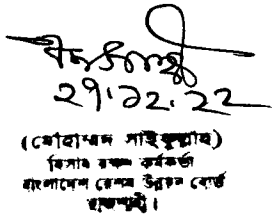 ২৭.১২.২২
(মোহাম্মদ সাইফুল্লাহ)
হিসাব রক্ষণ কর্মকর্তা
বাংলাদেশ রেশম উন্নয়ন বোর্ড
রাজশাহী।